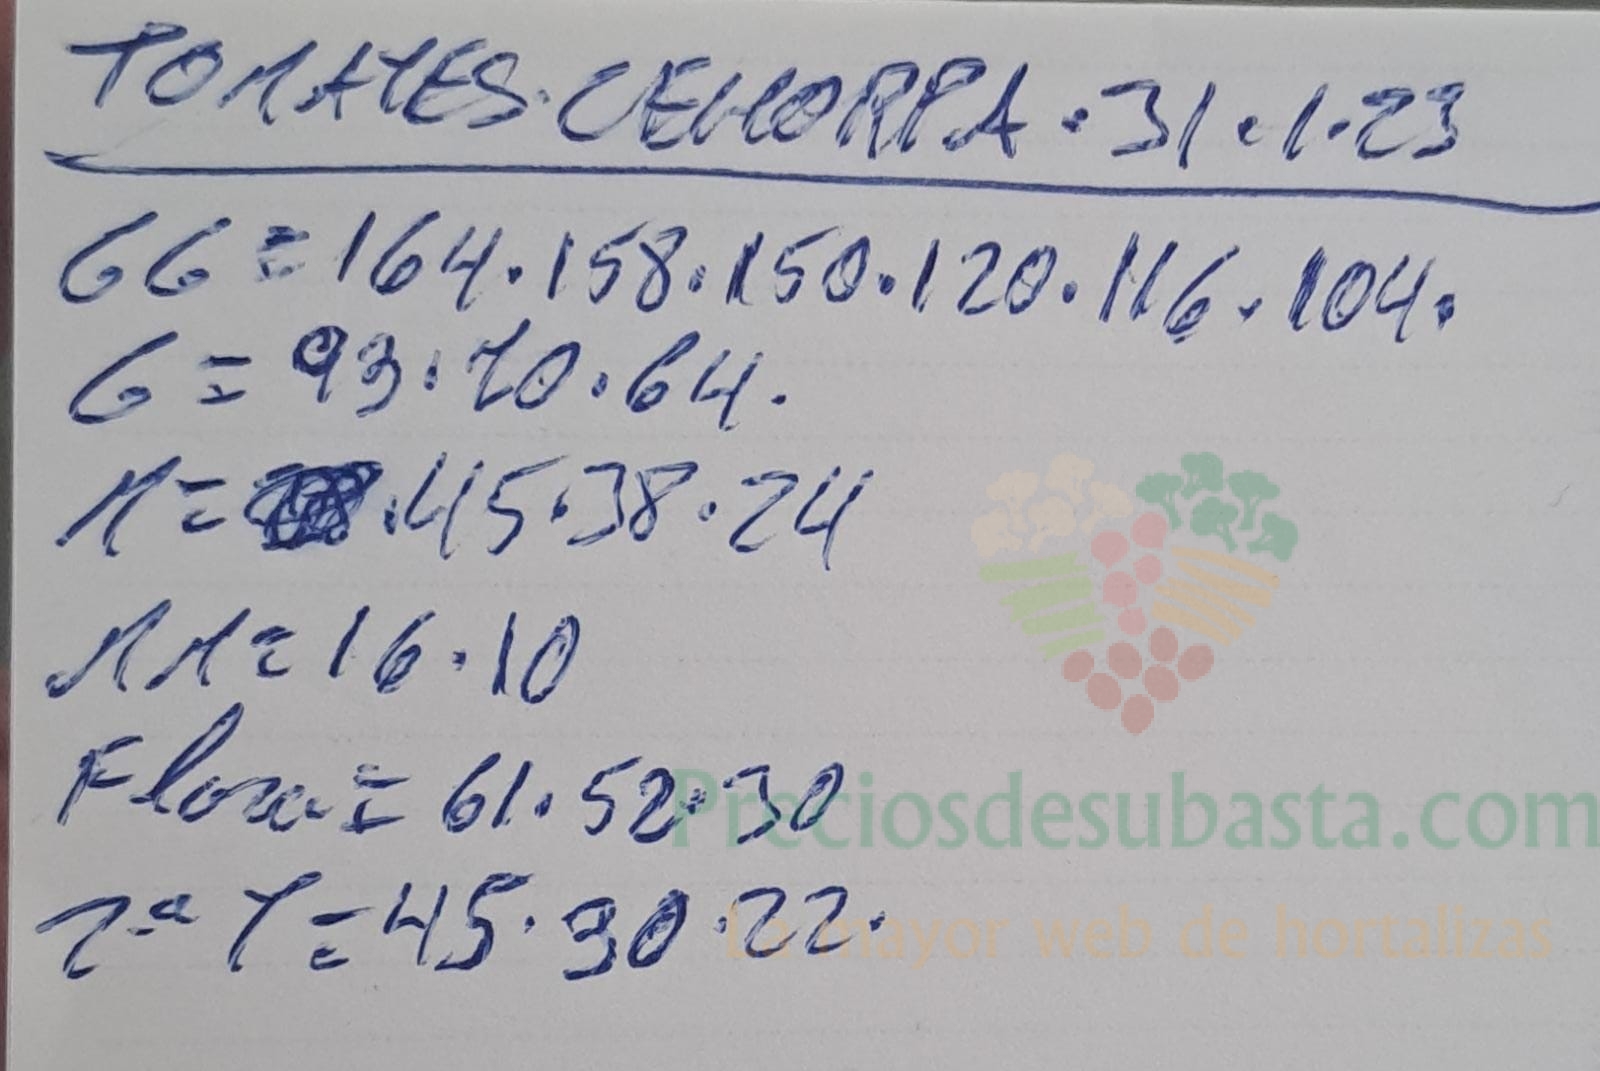 TOMATES.CEHORPA.31.1.23
GG=164.158.150.120.116.104.
G=93.70.64.
M= .45.38.24
MM=16.10
Flora=61.52.30
2ª T=45.30.22.
Preciosdesubasta.com
La mayor web de hortalizas